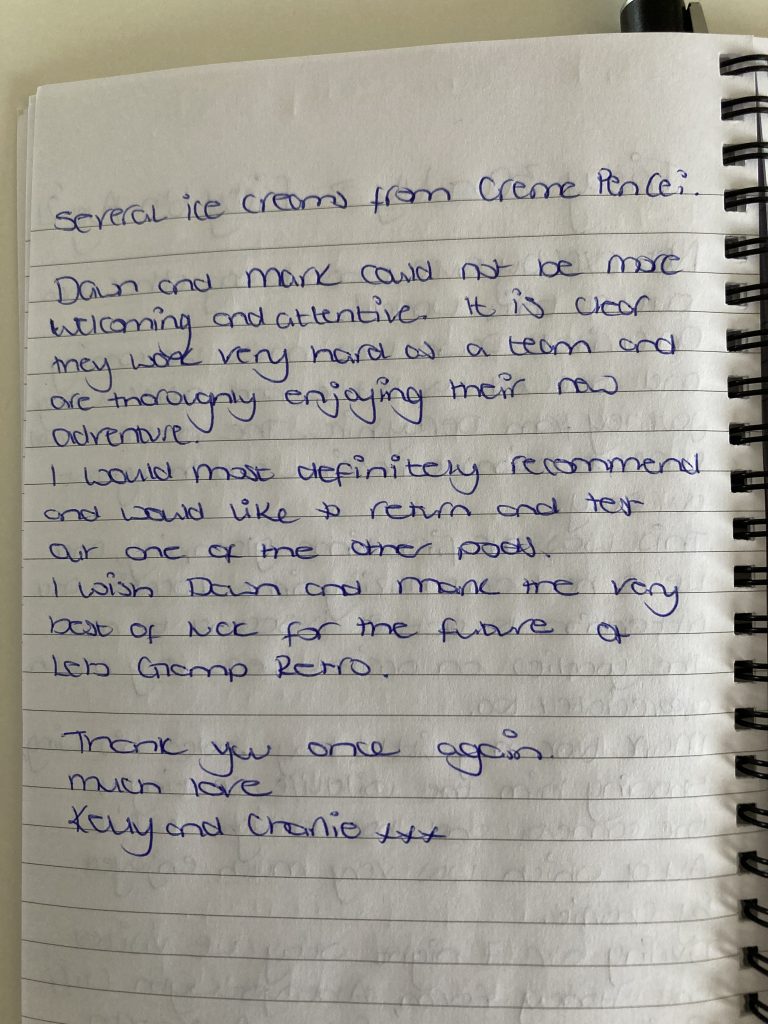 Several ice creams from Creme Pencei.
Dawn and Mark could not be more
welcoming and attentive. It is clear
they work very hard as a team and
are thoroughly enjoying their new
adventure.
I would most definitely recommend
and would like to return and test
out one of the other pods.
I wish Dawn and Mark the very
best of luck for the future of
Lets Glamp Retro.
Thank you once again
much love
Kelly and Charlie xxx